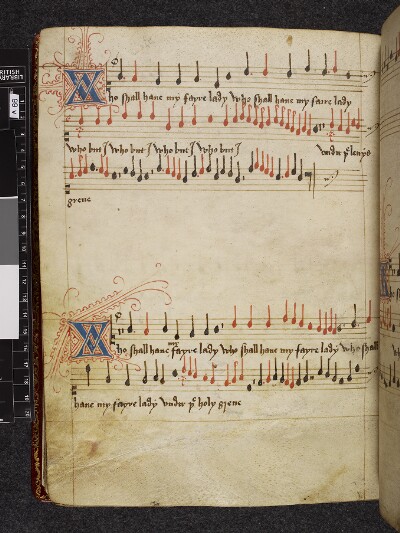 Who shall haue my fayre lady who shall haue my faire lady
who but I who but I who but I who but I vndir þe levys
grene
Who shall haue my fayre lady who shall haue my fayre lady who shall
haue my fayre lady vndir þe holy grene